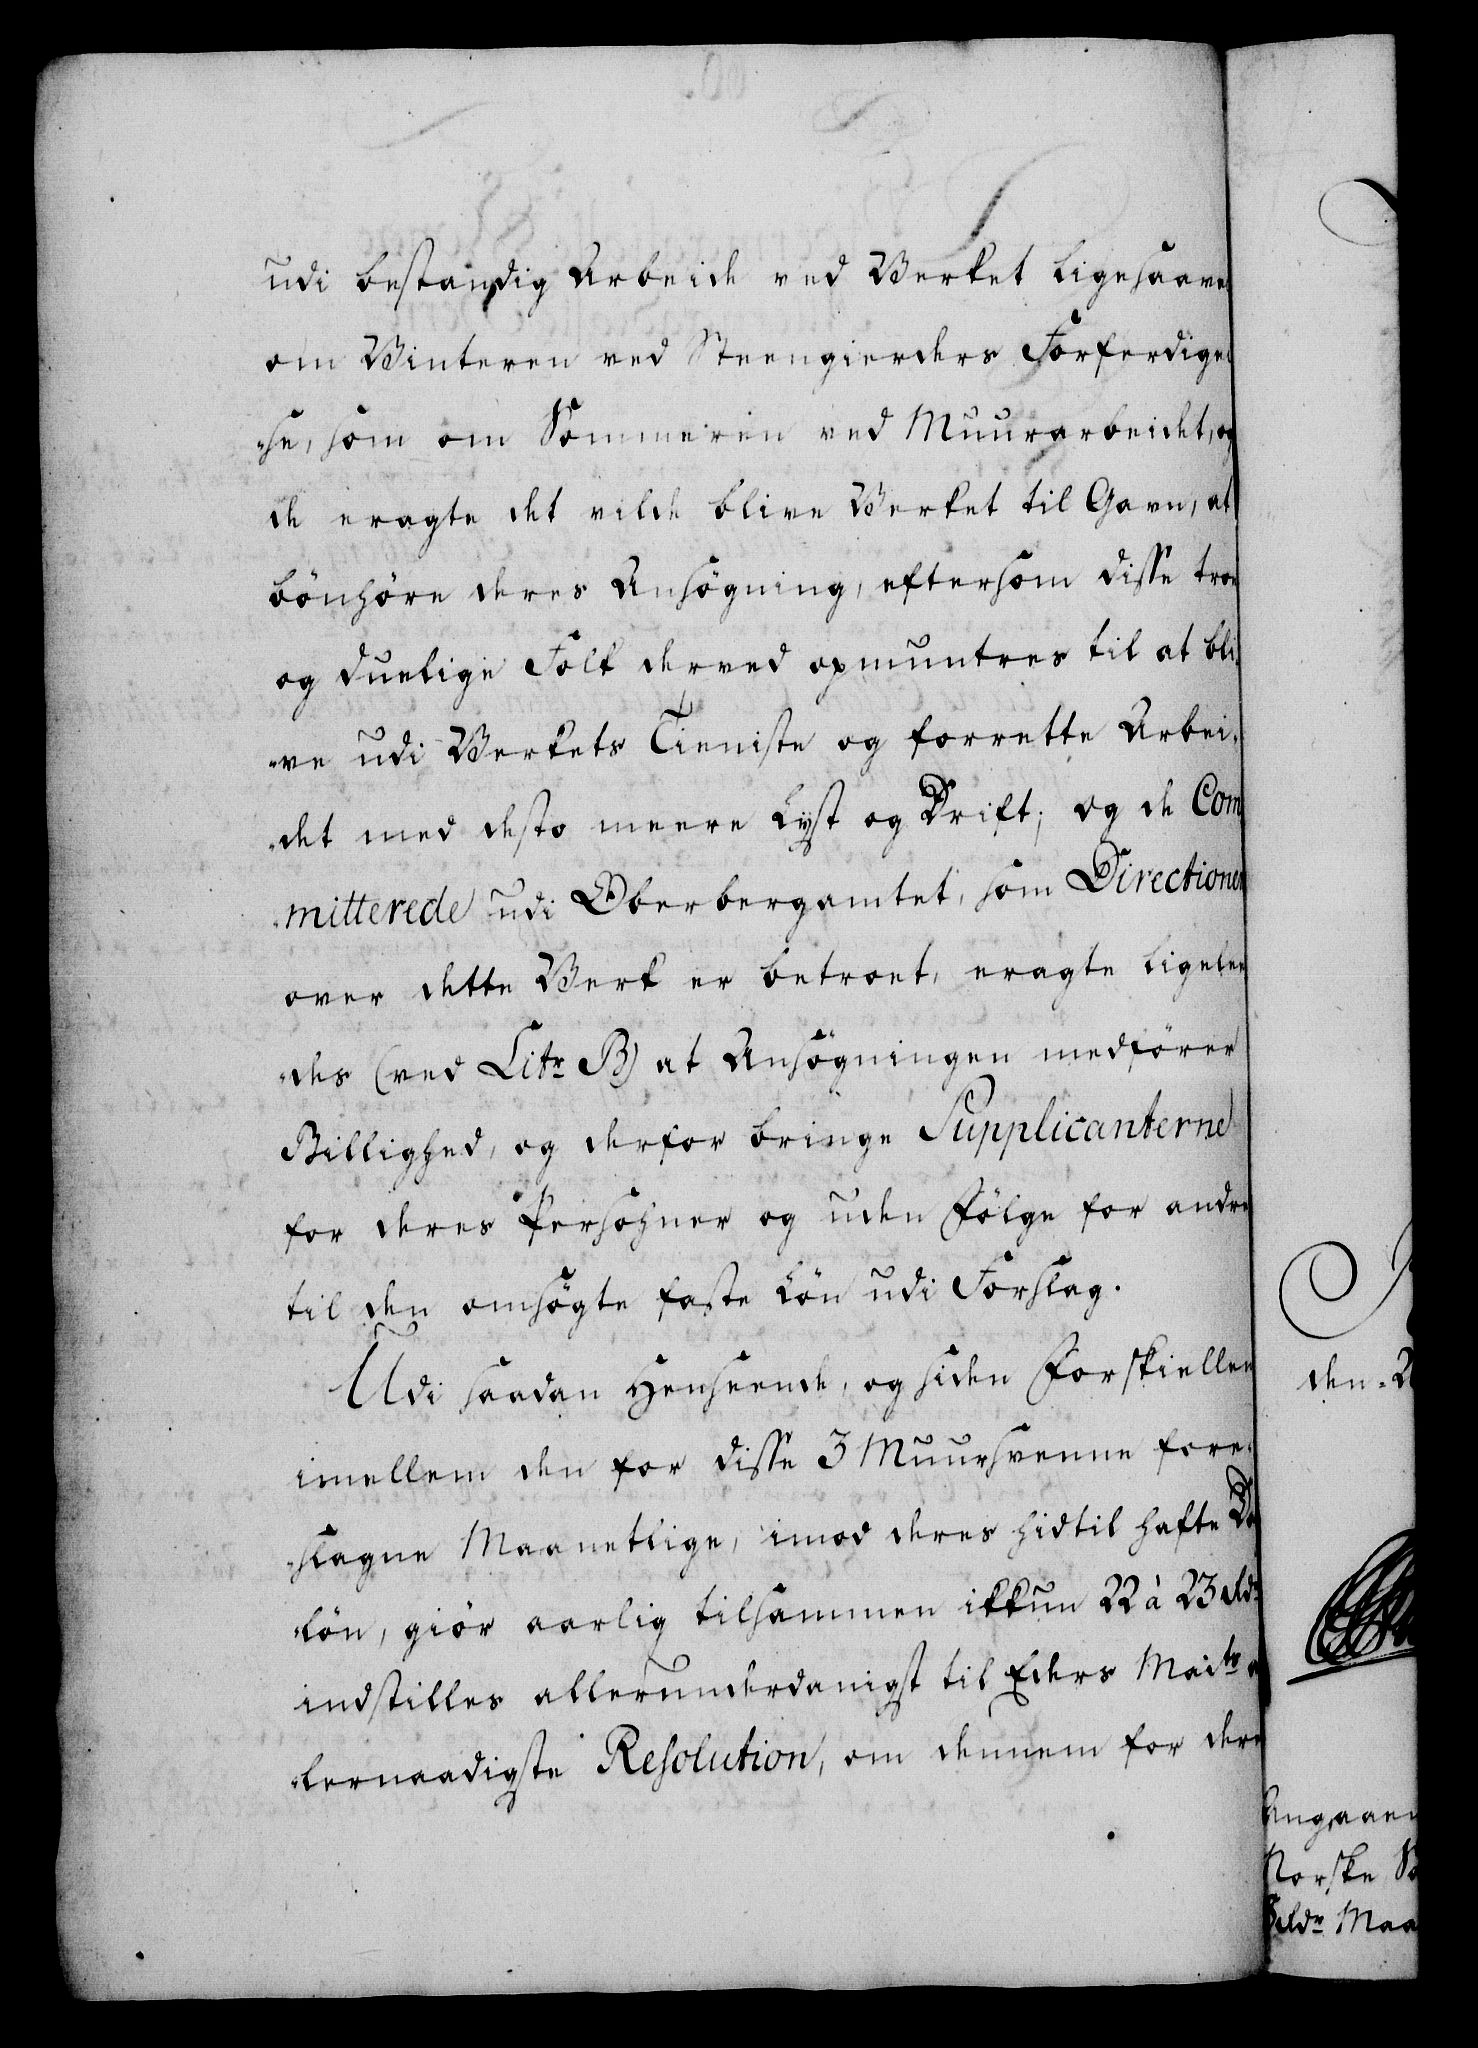 udi bestandig Arbeide ved Verket ligesaavel
om Vinteren ved Steengierders Forferdigel
-se, som om Sommeren ved Muurarbeidet, og
de eragte det vilde blive Verket til Gavn, at
bönhöre deres Ansögning, eftersom disse troe
og duelige Folk derved opmuntres til at bli-
-ve udi Verkets Tieniste og forrette Arbei-
-det med desto meere Lyst og Drift; og de Com
-mitterede udi Oberbergamtet, som Directionen
over dette Verk er betroet, eragte ligelee
-des (ved Litr B) at Ansögningen medförer
Billighed, og derfor bringe Supplicanterne
for deres Persohner og uden Fölge for andre
til den omsögte faste Lön udi Forslag.
Udi saadan Henseende, og siden Forskiellen
imellem den for disse 3 Muursvenne fore-
-slagne Maanetlige, imod deres hidtil hafte Da
-lön, giör aarlig tilsammen ikkun 22 à 23 rdr
indstilles allerunderdanigst til Eders Maits a
-lernaadigste Resolution, om dennem for dere
den 2
Angaaen
Norske
rdr Maa